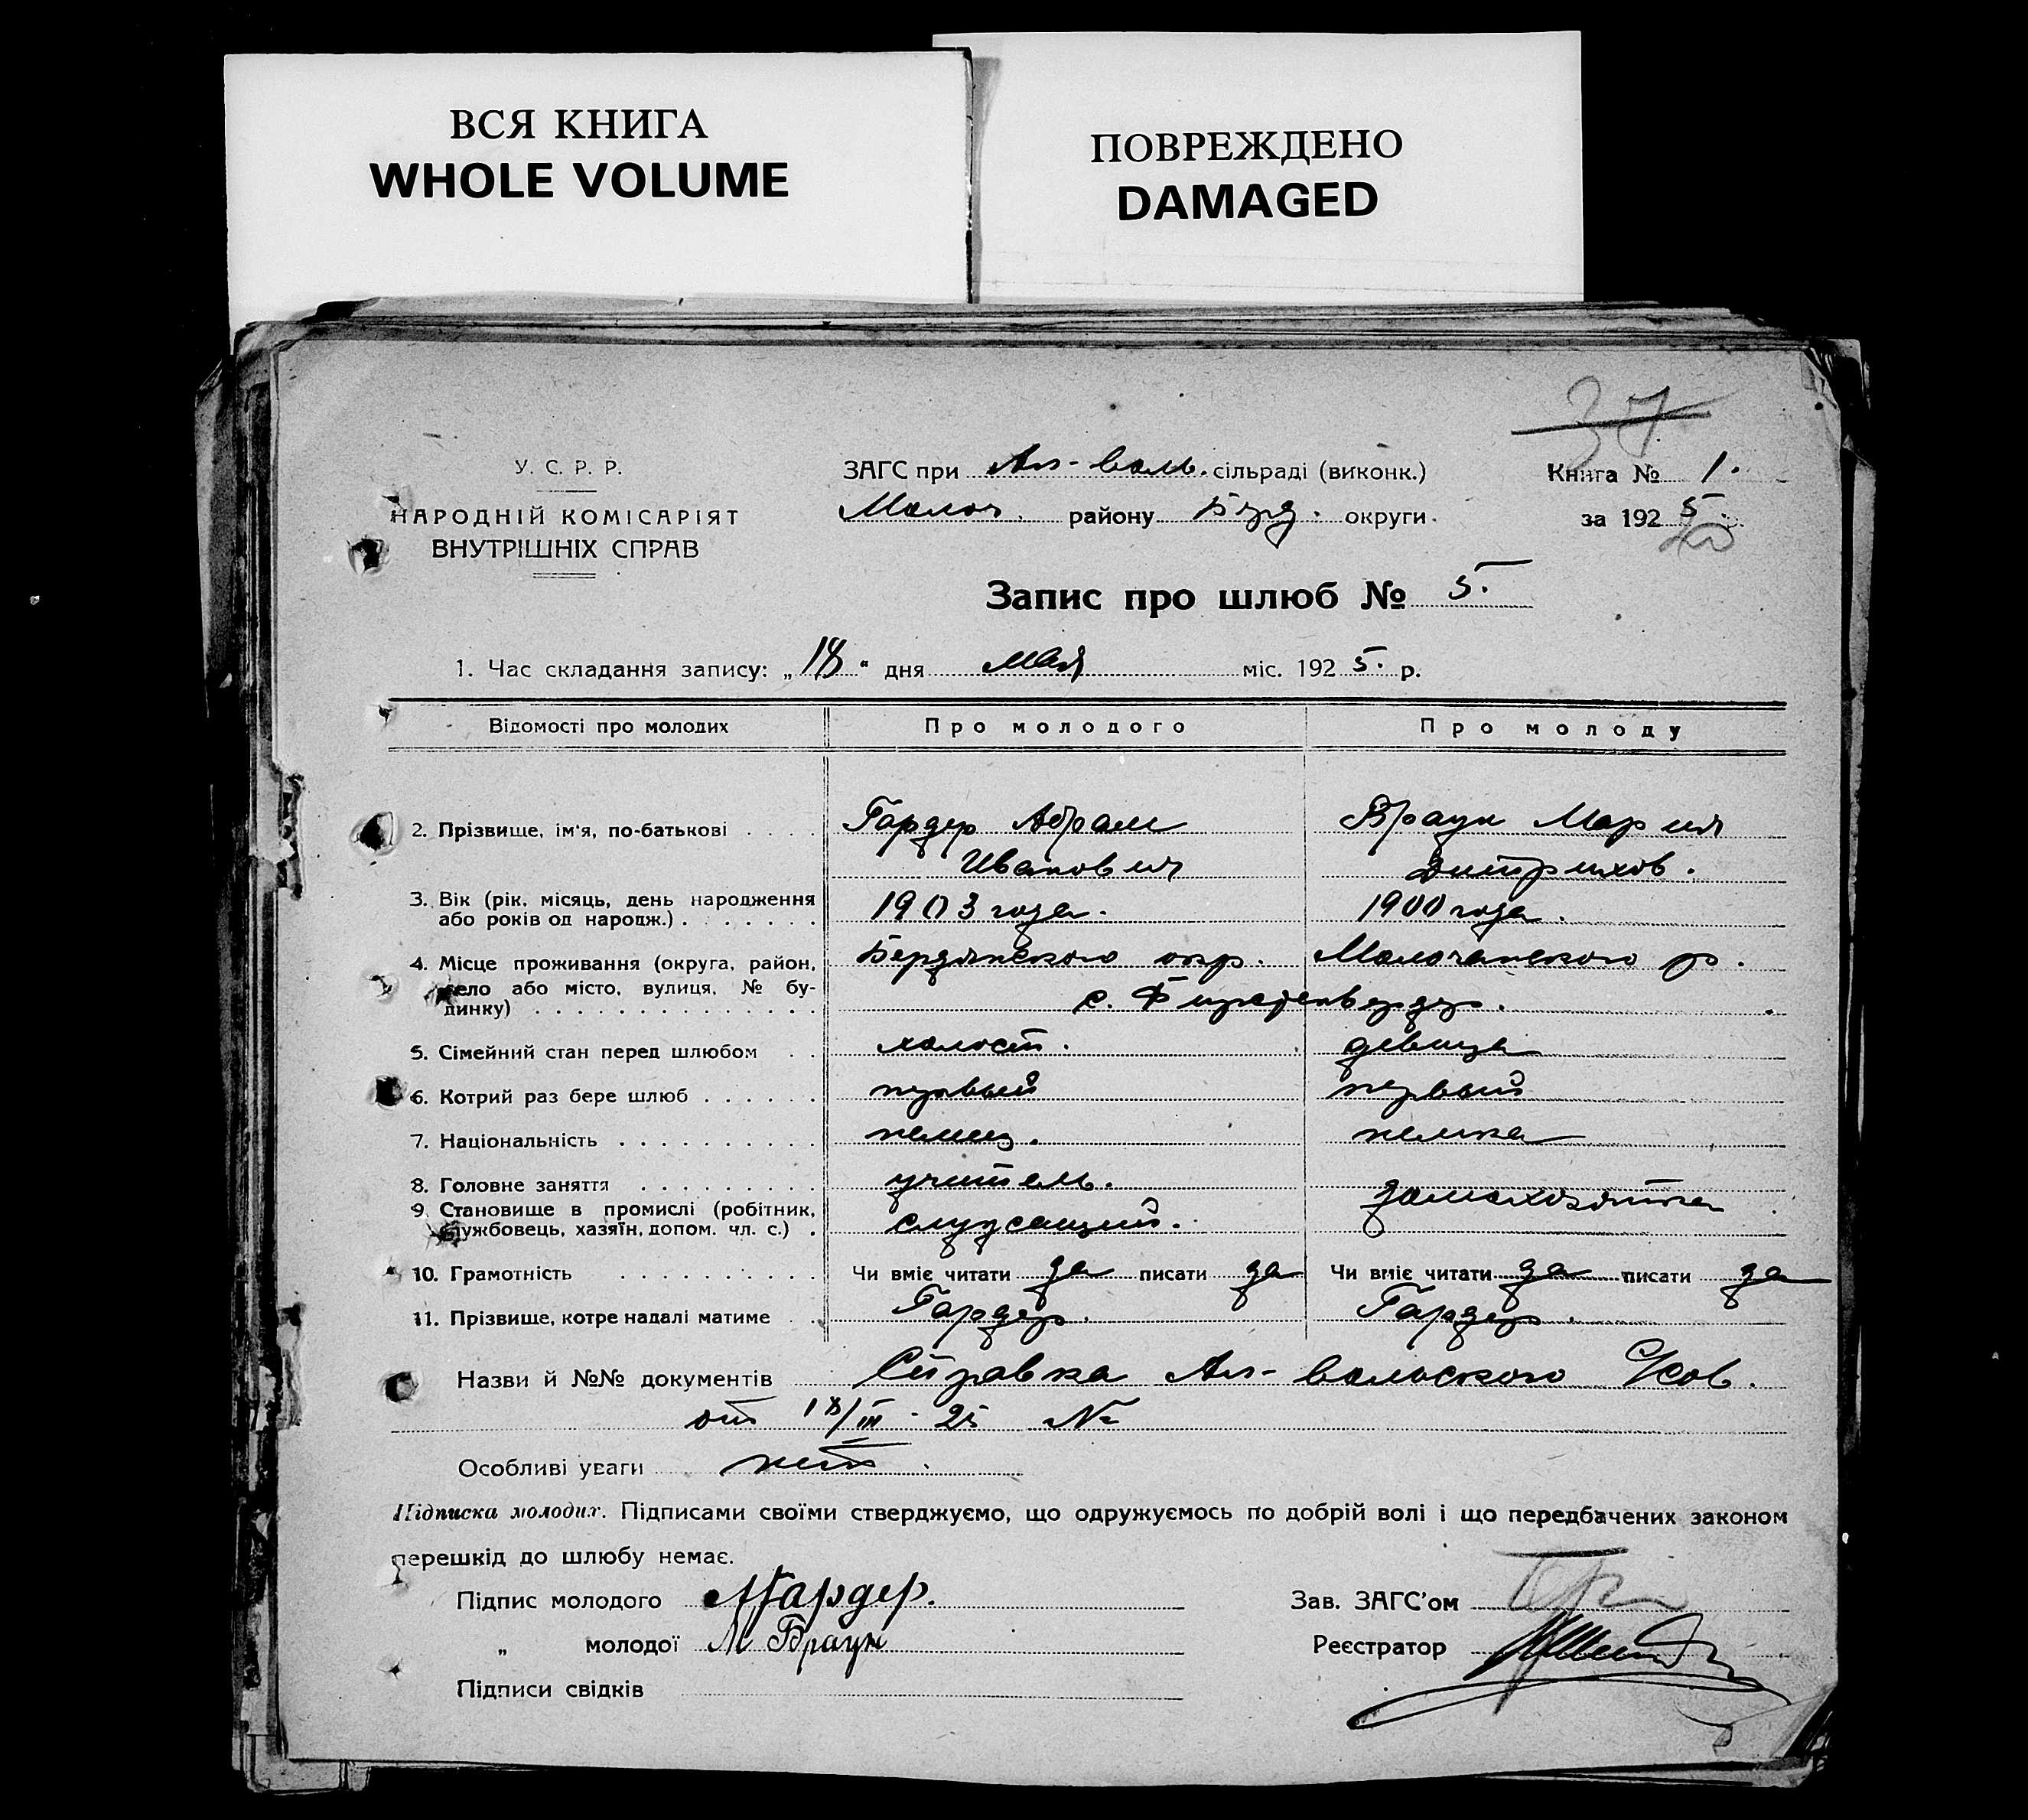 ВСЯ КНИГА
WHOLE VOLUME
ПОВРЕЖДЕНО
DAMAGED
37
У. С. Р. Р.
НАРОДНІЙ КОМІСАРІЯТ
ВНУТРІШНІХ СПРАВ
ЗАГС при Ал-вольв. сільраді (виконк.)
Молоч. району Бэрд. округи.
Книга № 1.
за 1925.
Запис про шлюб № 5.
1. Час складання запису: „18" дня мая міс. 1925. р.
Відомості про молодих Про молодого Про молоду
2. Прізвище, ім'я, по-батькові . . . . Гардер Абрам Браун Мария
Иванович Дитрихов.
3. Вік (рік, місяць, день народження
або років од народж.) . . . . . . 1903 года. 1900 года.
4. Місце проживання (округа, район, Бердянского окр. Молочанского р.
село або місто, вулиця, № бу-
динку) . . . . . . . . . . . . . . с. Фирстенвердер.
5. Сімейний стан перед шлюбом . . холост. девица
6. Котрий раз бере шлюб . . . . . . первый первый
7. Національність . . . . . . . . . . немец. немка
8. Головне заняття . . . . . . . . . учитель. домахозяйка
9. Становище в промислі (робітник,
службовець, хазяїн, допом. чл. с.) . служащий.
10. Грамотність . . . . . . . . . . Чи вміє читати да писати да Чи вміє читати да писати да
11. Прізвище, котре надалі матиме . . Гардер. Гардер.
Назви й №№ документів Справка Ал-вольского С/сов.
от 18/III - 25 №
Особливі уваги нет.
Підписка молодих. Підписами своїми стверджуємо, що одружуємось по добрій волі і що передбачених законом
перешкід до шлюбу немає.
Підпис молодого АГардер.
Зав. ЗАГС'ом
„ молодої М Браун
Реєстратор
Підписи свідків